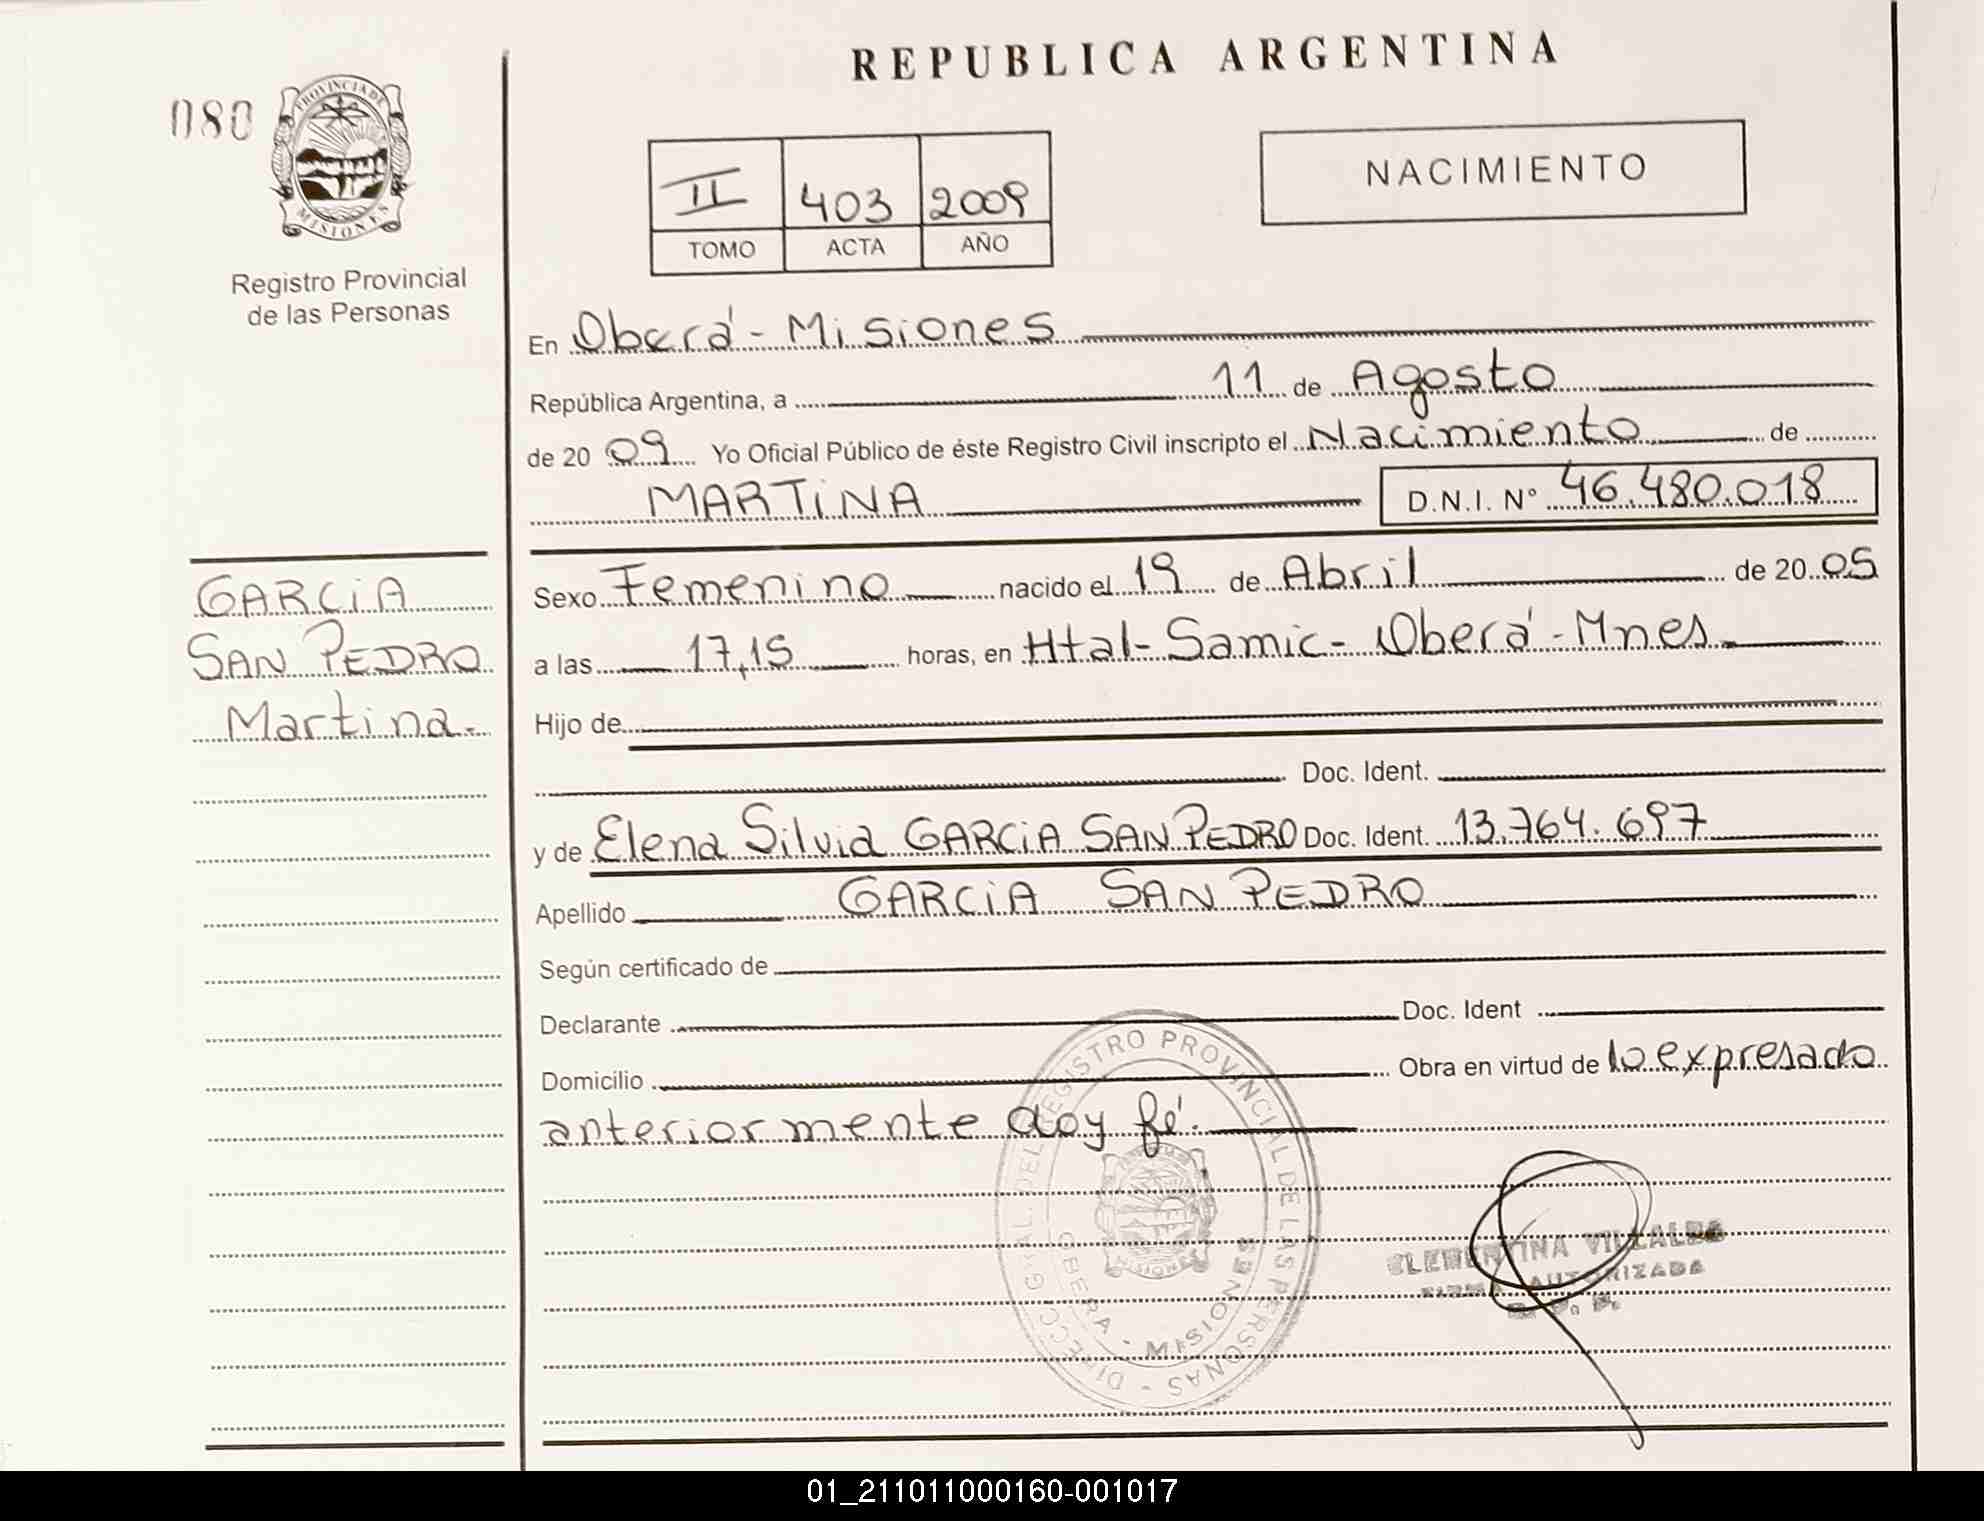 REPUBLICA ARGENTINA
080
PROVINCIA DE
MISIONES
Registro Provincial
de las Personas
II 403 2009
TOMO ACTA AÑO
NACIMIENTO
En Oberá - Misiones
República Argentina, a 11 de Agosto
de 20 09 Yo Oficial Público de éste Registro Civil inscripto el Nacimiento de
MARTiNA D.N.I. N° 46.480.018
GARCiA
SAN PEDRO
Martina.
Sexo Femenino nacido el 19 de Abril de 20 05
a las 17,15 horas, en Htal - Samic - Oberá - Mnes
Hijo de
Doc. Ident.
y de Elena Silvia GARCiA SAN PEDRO Doc. Ident. 13.764.697
Apellido GARCiA SAN PEDRO
Según certificado de
Declarante Doc. Ident
Domicilio Obra en virtud de lo expresado
anteriormente doy fé.
DIRECC. GRAL. DEL REGISTRO PROVINCIAL DE LAS PERSONAS -
OBERA - MISIONES
CLEMENTINA VILLALBA
FIRMA AUTORIZADA
R. P. P.
01_211011000160-001017